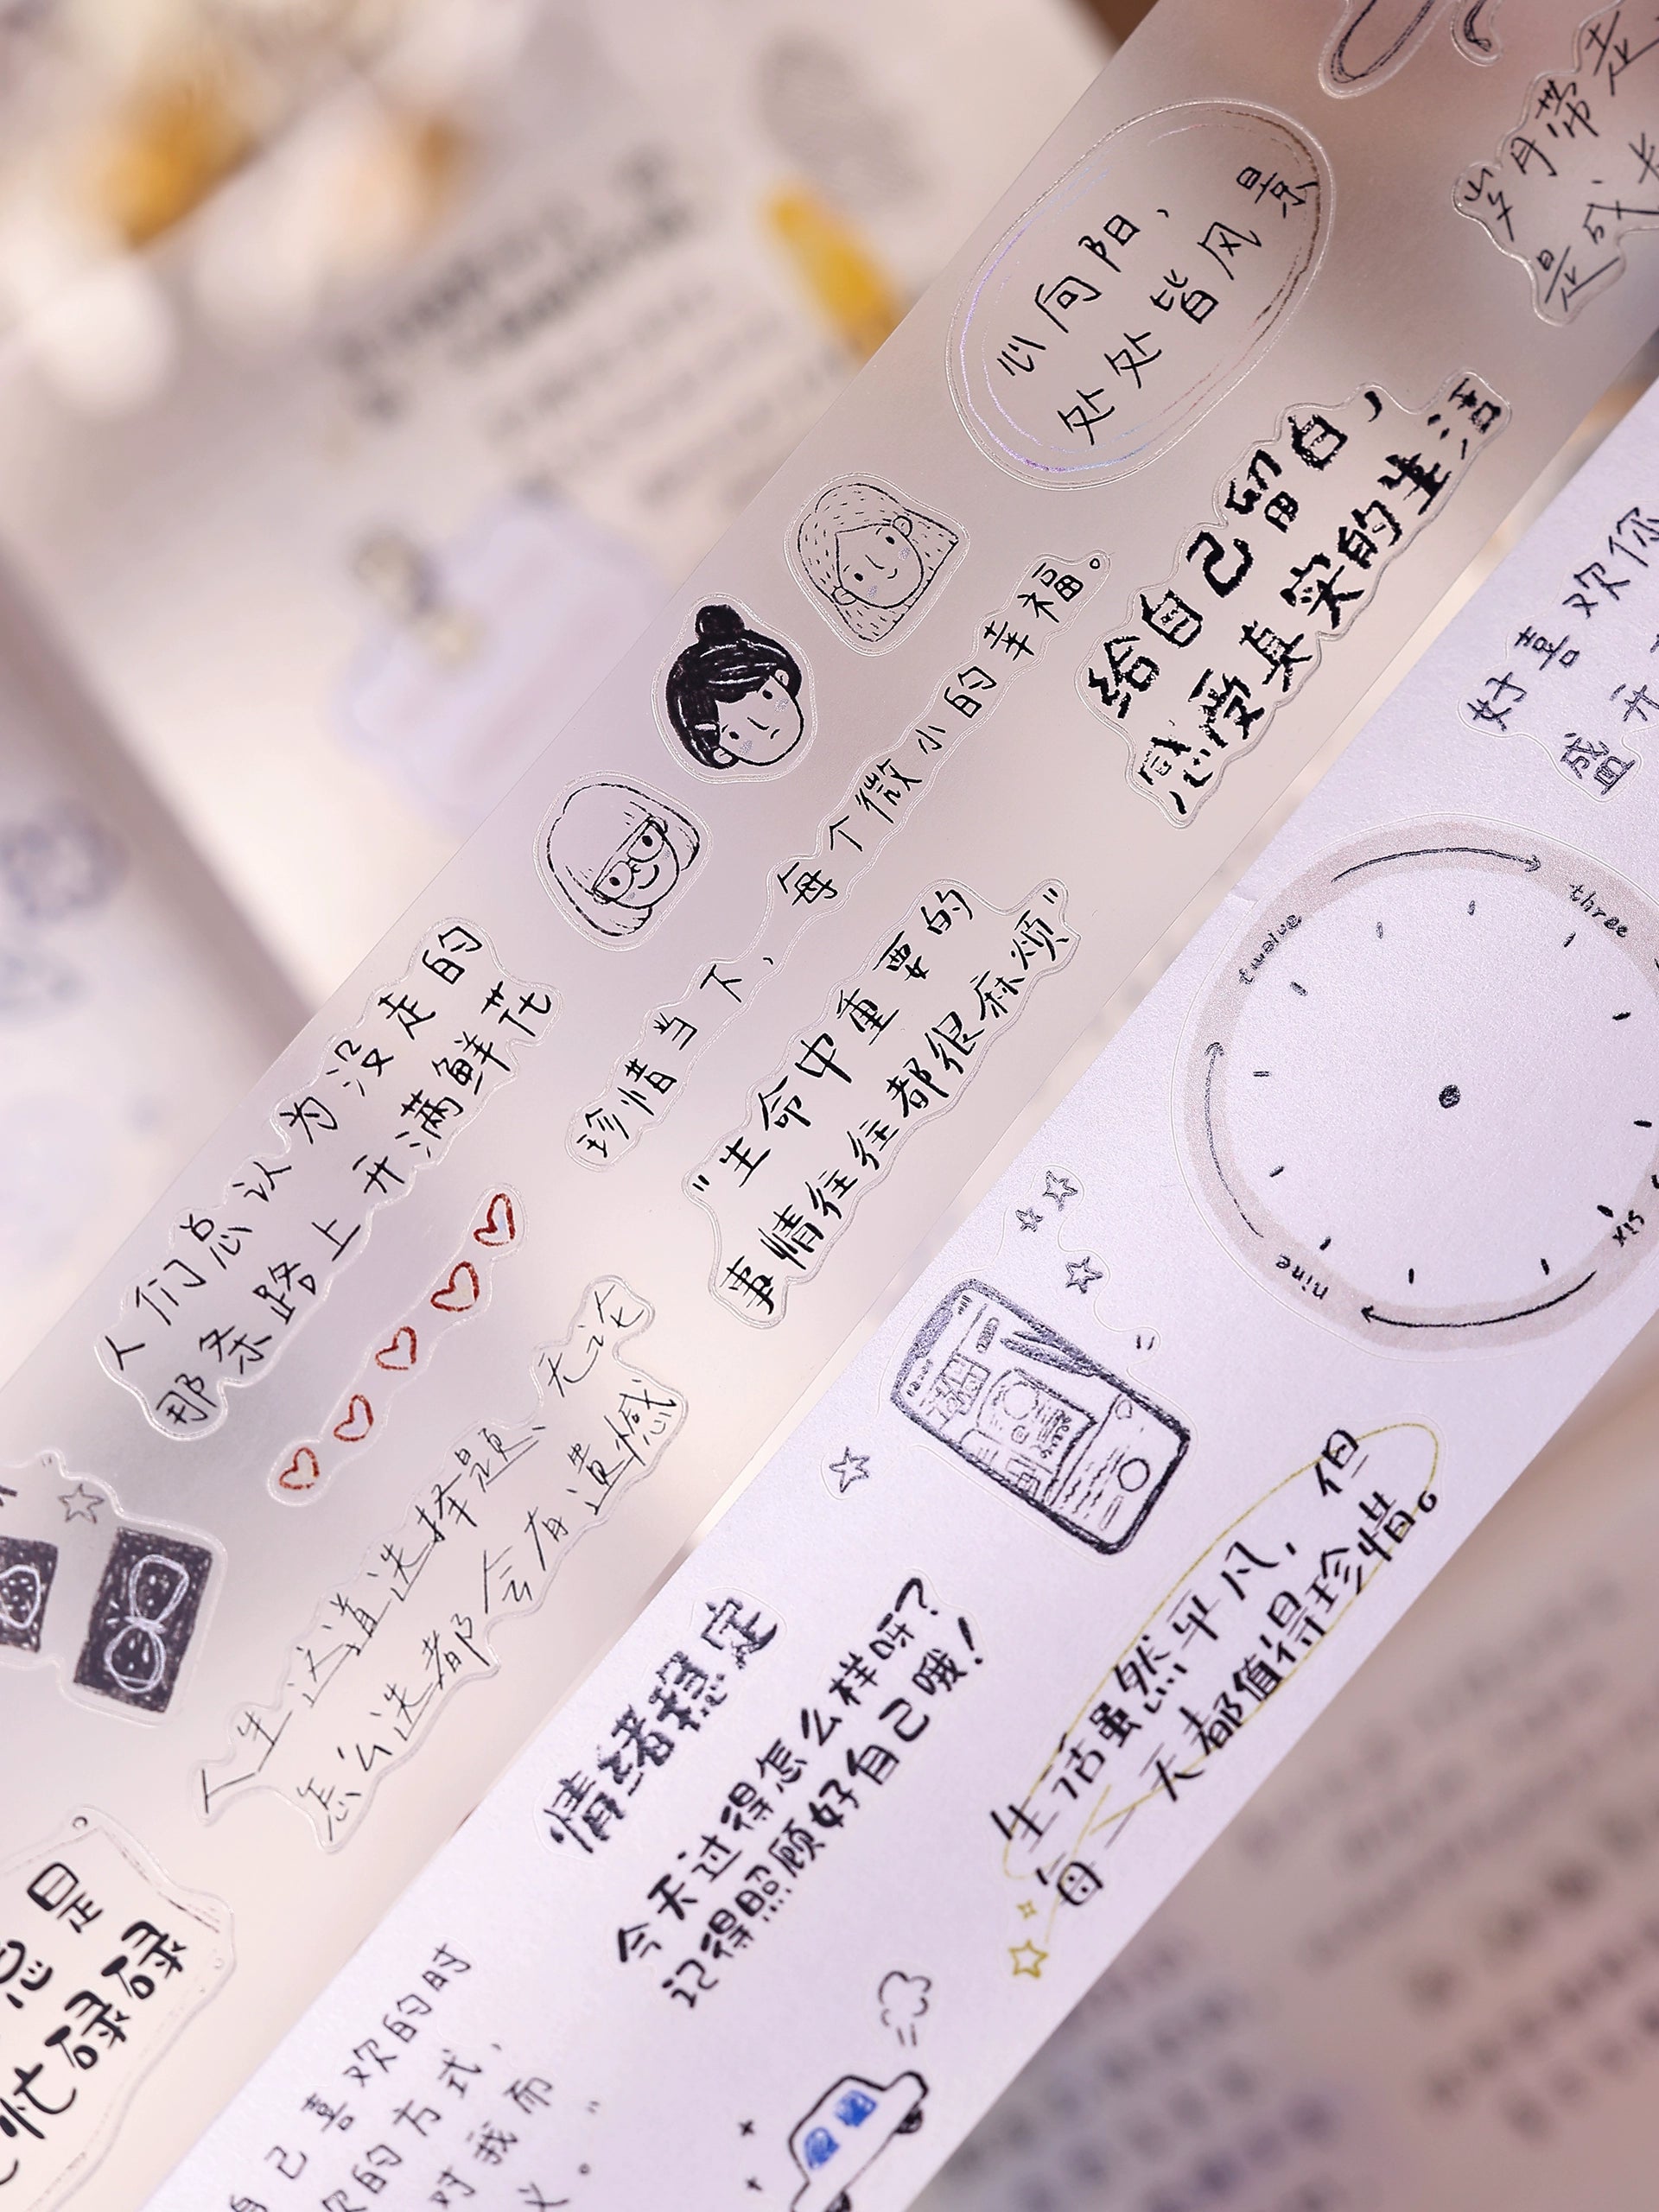 心向阳，
处处皆风景
岁月带走
是成长
给自己留白，
感受真实的生活
珍惜当下，每个微小的幸福。
"生命中重要的
事情往往都很麻烦"
人们总认为没走的
那条路上开满鲜花
人生这道选择题、无论
怎么选都会有遗憾
总是
忙碌碌
好喜欢你
盛开
twelve
three
six
nine
情绪稳定
今天过得怎么样呀？
记得照顾好自己哦！
生活虽然平凡，但
每一天都值得珍惜。
自己喜欢的时
欢的方式，
对我而
义。"